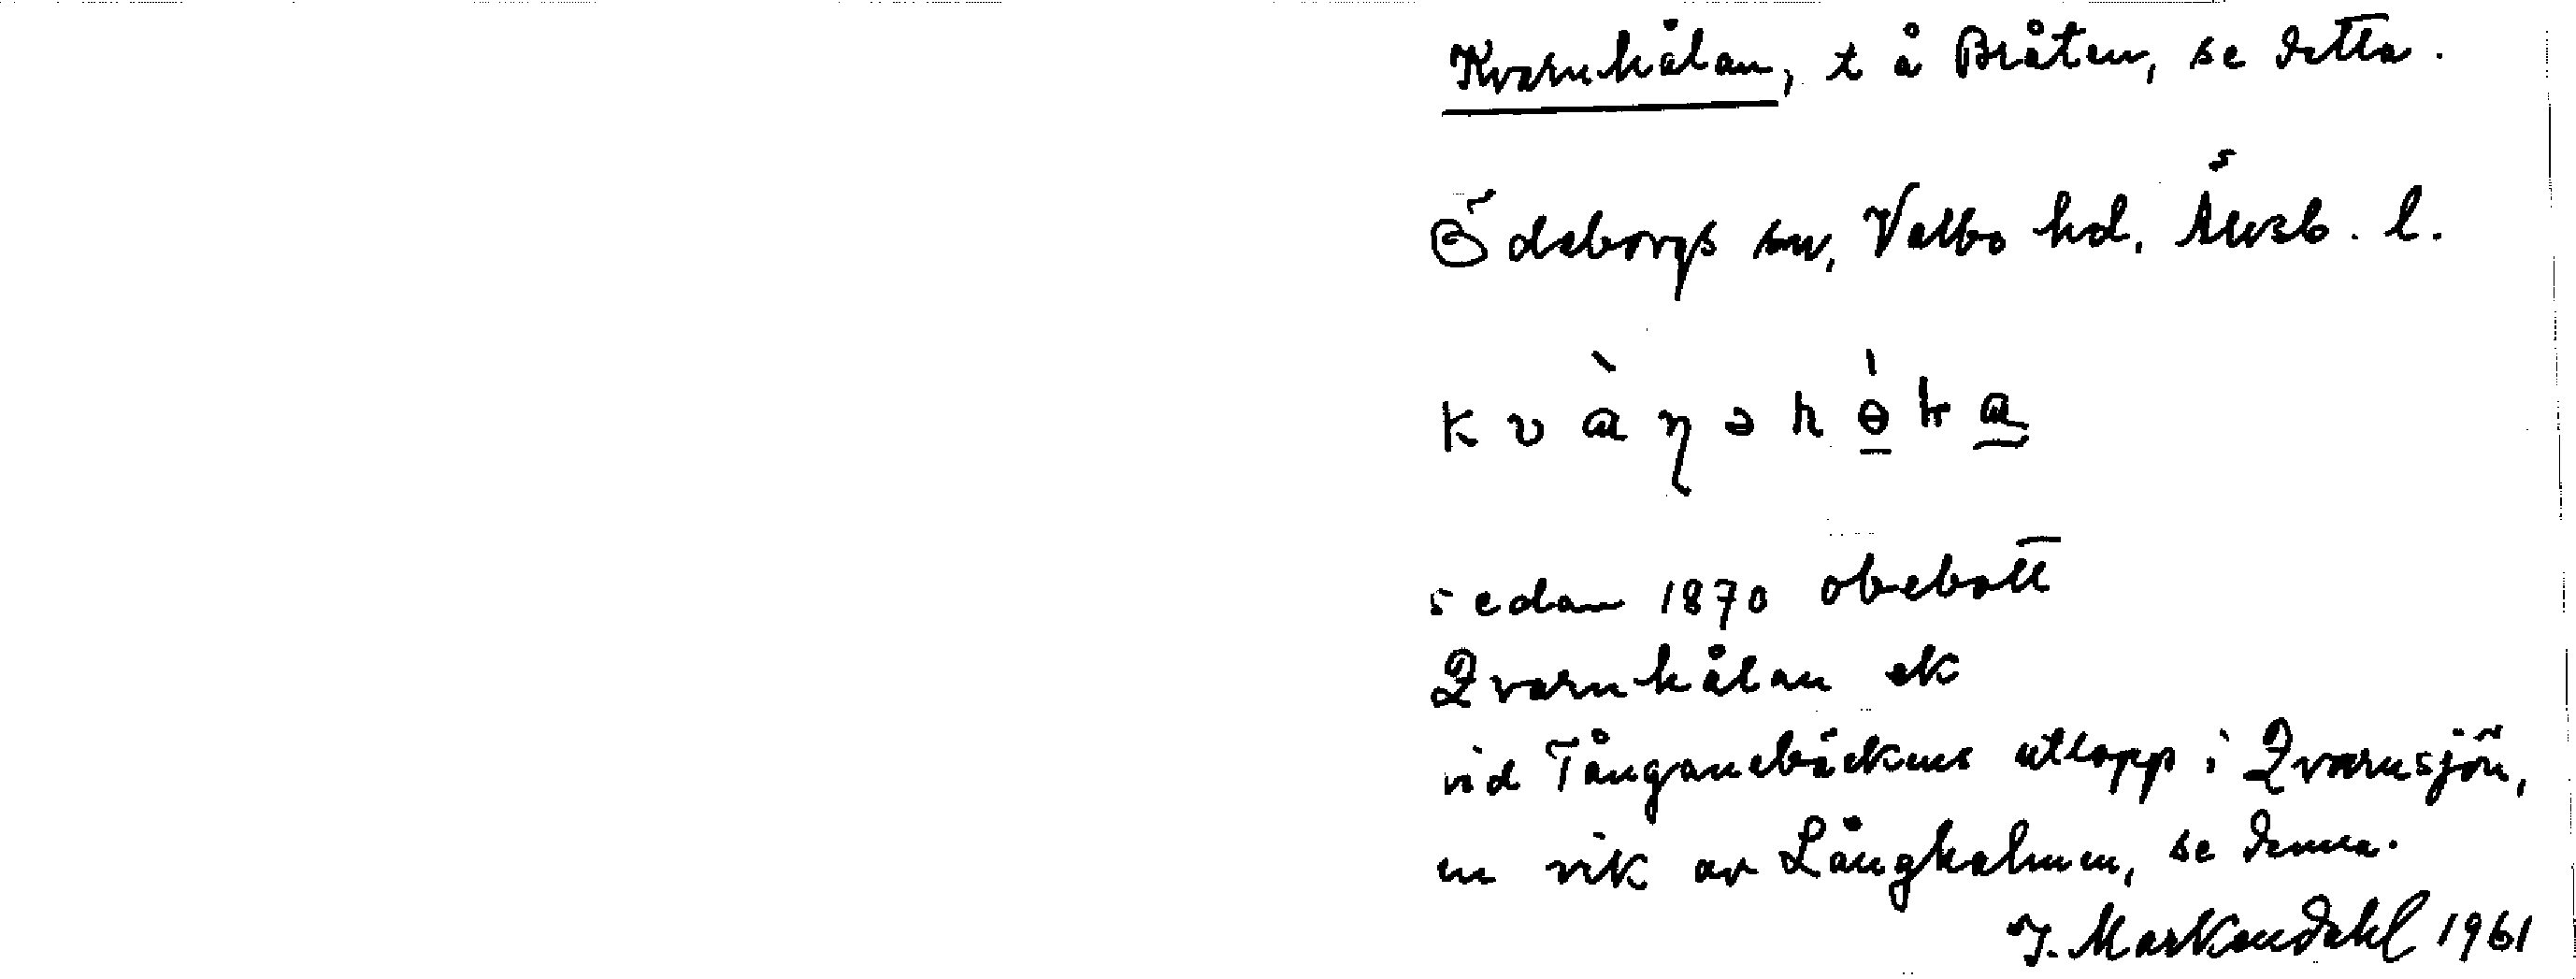 Kvarnhålan, t å Bråten, se detta.
Ödeborgs sn, Valbo hd, Älvsb. l.
sedan 1870 obebott
Qvarnhålan ek
vid Tånganebäckens utlopp i Qvarnsjön,
en vik av Långhalmen, se denna.
J. Markendahl 1961